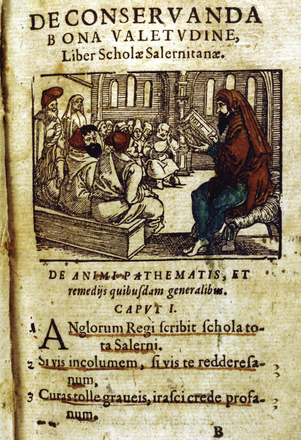 DE CONSERVANDA
BONA VALETVDINE,
Liber Scholæ Salernitanæ.
DE ANIMI PATHEMATIS, ET
remedijs quibusdam generalibus.
CAPVT I.
ANglorum Regi scribit schola to-
ta Salerni.
2 Si vis incolumem, si vis te reddere sa-
num,
3 Curas tolle graueis, irasci crede profa-
num.
B